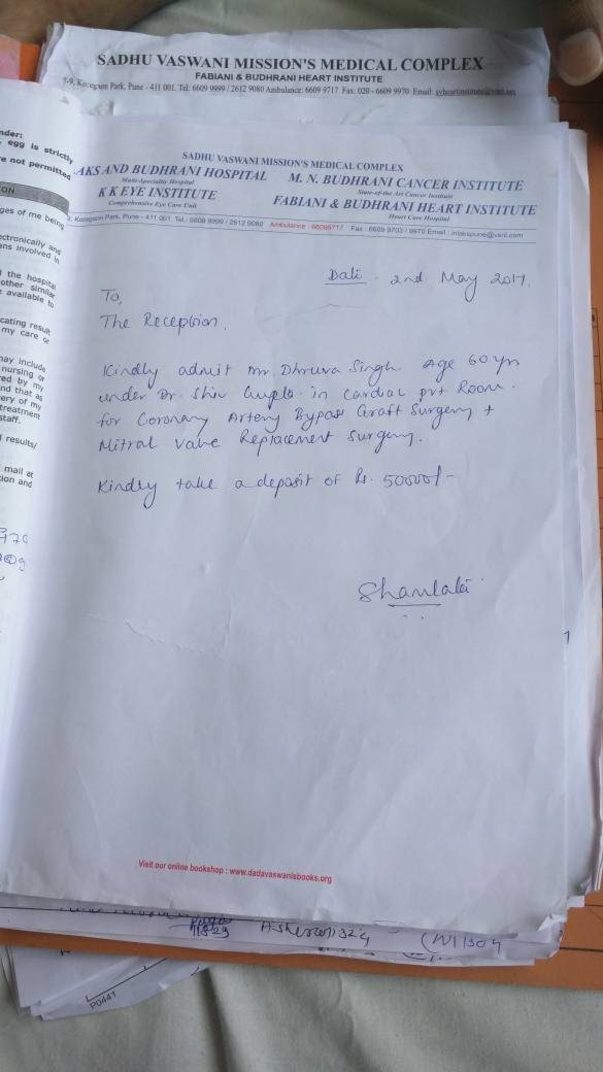 SADHU VASWANI MISSION'S MEDICAL COMPLEX
FABIANI & BUDHRANI HEART INSTITUTE
7-9, Koregaon Park, Pune - 411 001. Tel: 6609 9999 / 2612 9080 Ambulance: 6609 9717 Fax: 020 - 6609 9970 Email:
nder:
egg is strictly
re not permitted
ION
ges of me being
ectronically and
ans involved in
the hospital
other similar
available to
cating result
my care or
may include
nursing or
red by my
nd that as
ery of my
treatment
staff.
results/
mail at
ion and
SADHU VASWANI MISSION'S MEDICAL COMPLEX
AKS AND BUDHRANI HOSPITAL
Multi-Speciality Hospital
M. N. BUDHRANI CANCER INSTITUTE
State-of-the Art Cancer Institute
K K EYE INSTITUTE
Comprehensive Eye Care Unit
FABIANI & BUDHRANI HEART INSTITUTE
Heart Care Hospital
Koregaon Park, Pune - 411 001. Tel.: 6609 9999 / 2612 9080 Ambulance : 66099717 Fax : 6609 9703 / 9970 Email : inlakspune@vsnl.com
Date - 2nd May 2017.
To,
The Reception.
Kindly admit Mr. Dhruva Singh. Age 60 yrs
under Dr. Shiv Gupta in Cardiac pvt Room.
for Coronary Artery Bypass Graft Surgery +
Mitral Valve Replacement Surgery.
Kindly take a deposit of Rs. 50000/-
Visit our online bookshop : www.dadavaswanisbooks.org
P0441